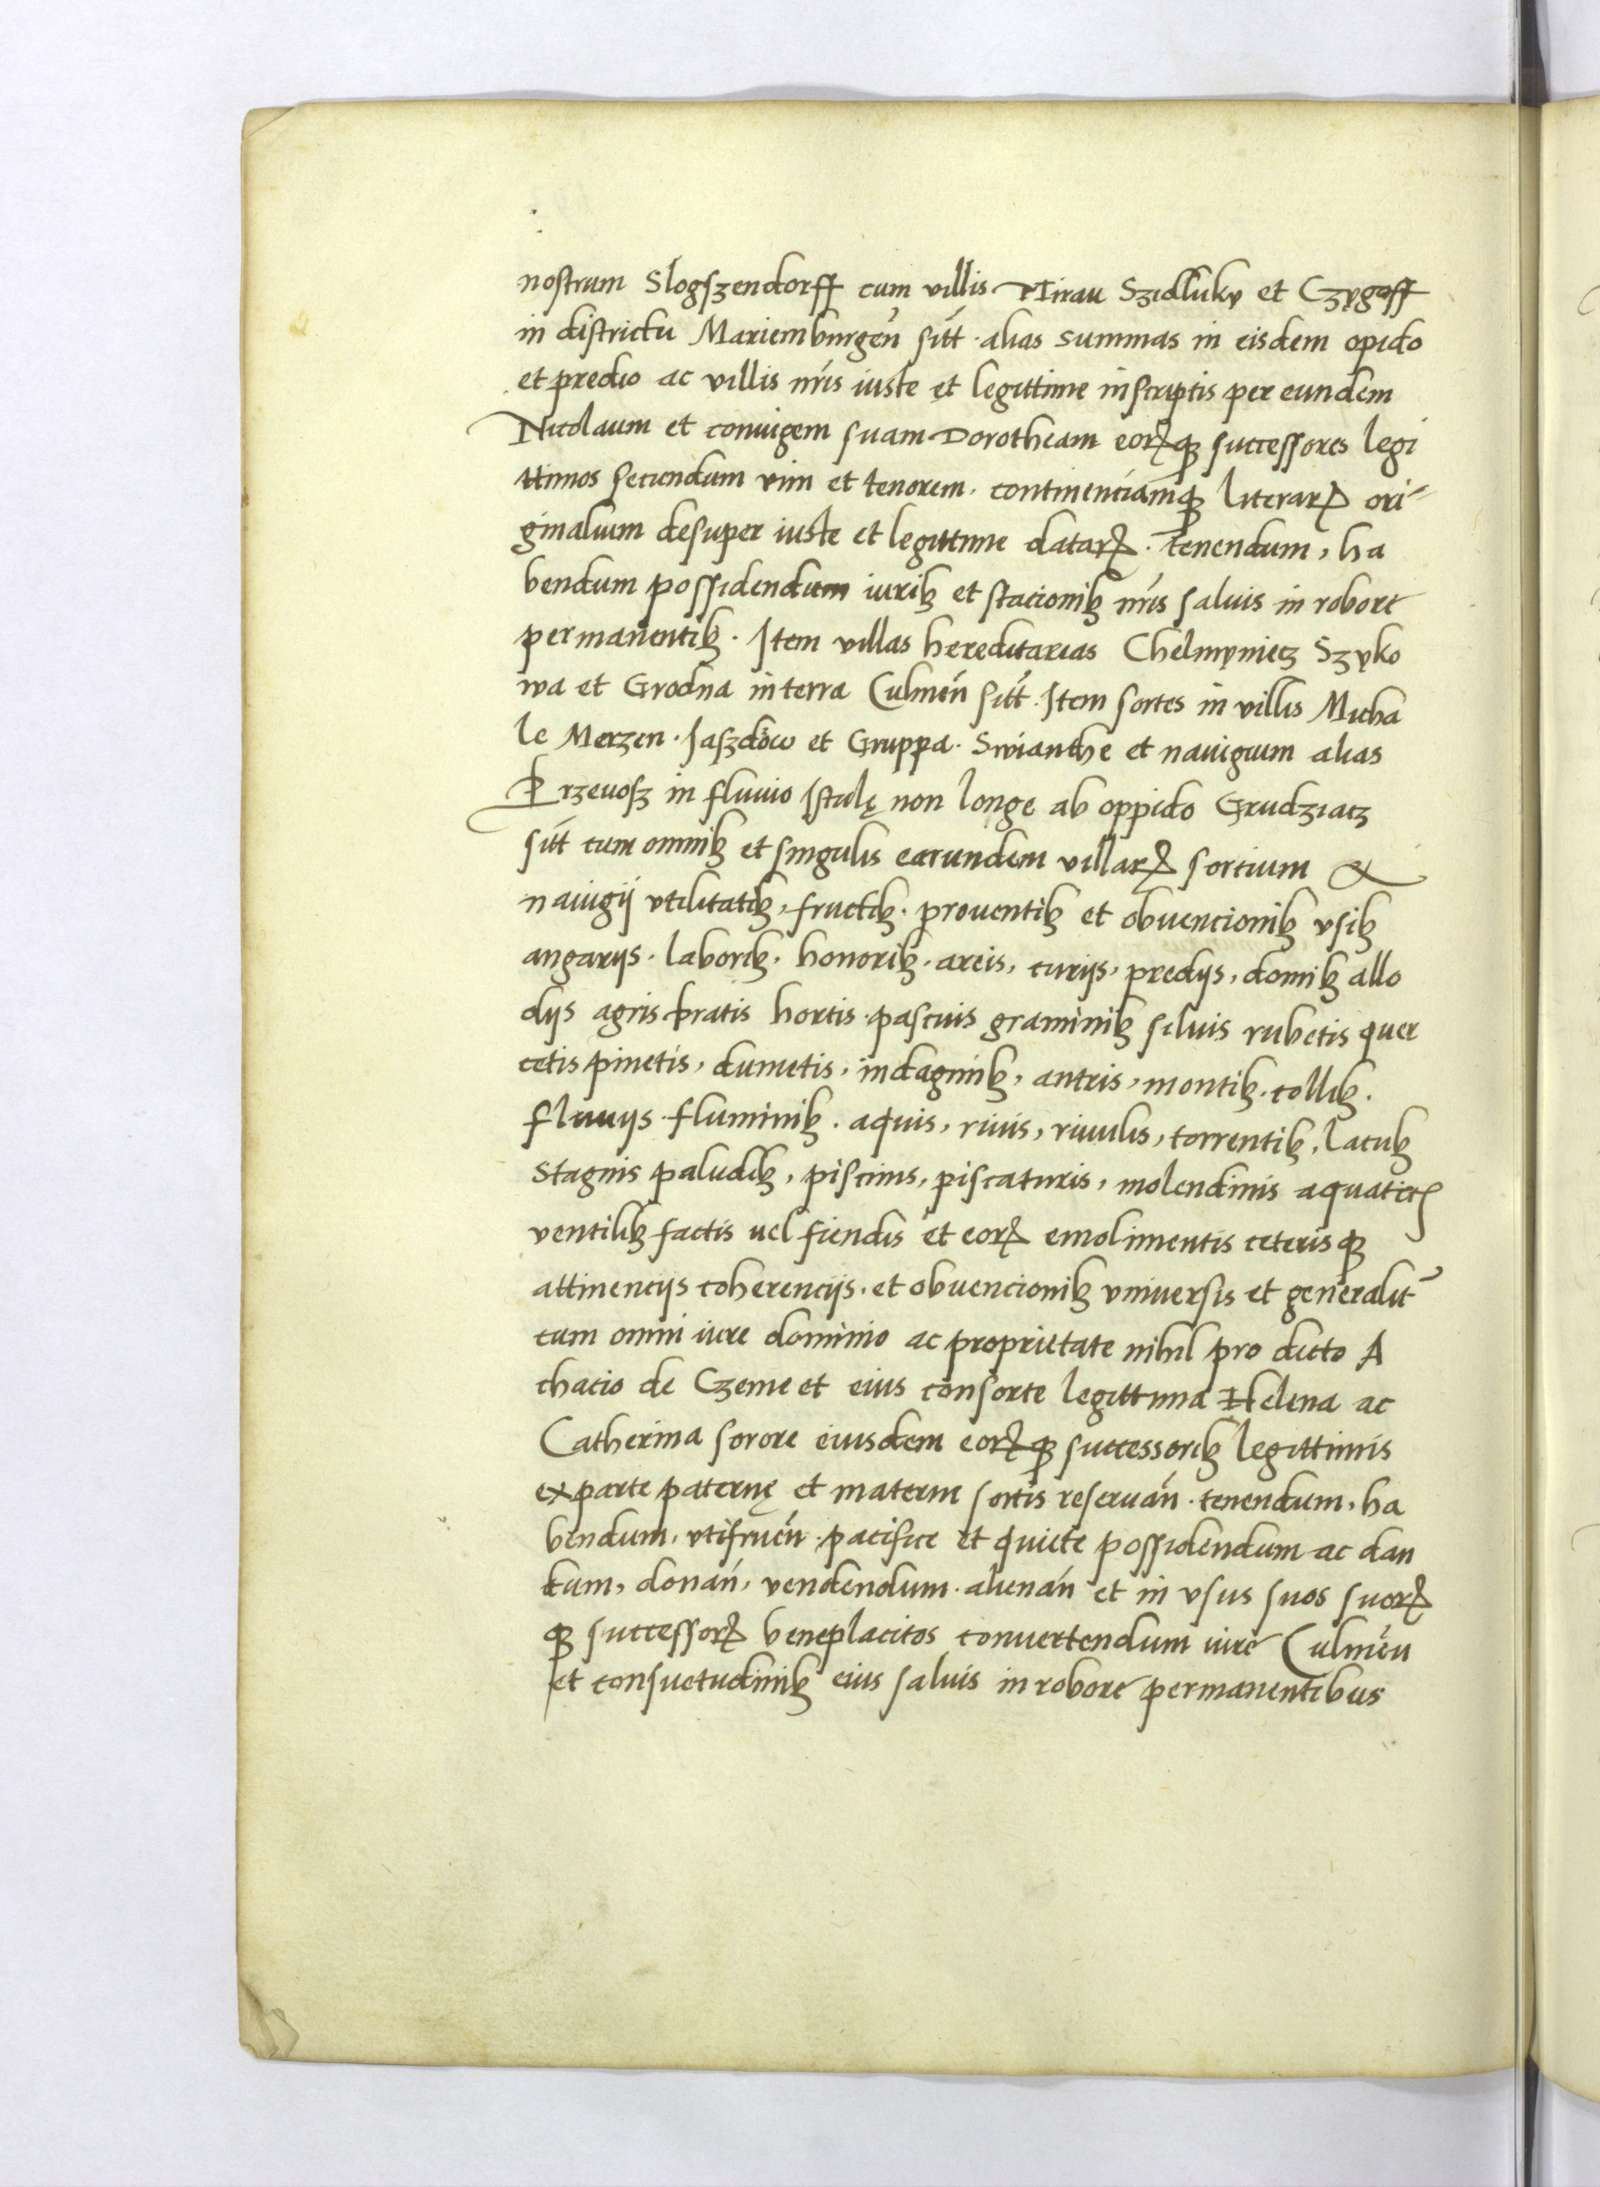 nostrum Slogszendorff cum villis Mirau Szidluky et Czygoff
in districtu Mariemburgeń sitt · alias summas in eisdem opido
et predio ac villis nr̃is iuste et legittime inscriptis per eundem
Nicolaum et coniugem suam Dorotheam eorꝝqꝫ successores legi
ttimos secundum vim et tenorem · continenciamqꝫ literarꝝ ori-
ginalium desuper iuste et legittime datarꝝ · tenendum, ha
bendum possidendum iuribꝫ et stacionibꝫ nr̃is saluis in robore
permanentibꝫ · Item villas hereditarias Chelmynietz Szyko
wa et Grodna in terra Culmeń sitt̃ · Item sortes in villis Micha
le Merzen · Jaszdow et Gruppa · Swianthe et nauigium alias
Przeuosz in fluuio Istulę non longe ab oppido Grudziacz
sitt̃ cum omnibꝫ et singulis earundem villarꝝ sortium &
nauigij vtilitatibꝫ, fructibꝫ · prouentibꝫ et obuencionibꝫ vsibꝫ
angarijs · laboribꝫ · honoribꝫ · areis, curijs, predijs, domibꝫ allo
dijs agris pratis hortis · pascuis graminibꝫ siluis rubetis quer
cetis pinetis, dumetis, indaginibꝫ, antris, montibꝫ · collibꝫ ·
fluuijs · fluminibꝫ · aquis, riuis, riuulis, torrentibꝫ, lacubꝫ
stagnis paludibꝫ, piscinis, piscaturis, molendinis aquaticꝭ
ventilibꝫ factis vel fiendis et eorꝝ emolimentis ceterisqꝫ
attinencijs coherencijs · et obuencionibꝫ vniuersis et generalit̃
cum omni iure dominio ac proprietate nihil pro dicto A
chacio de Czeme et eius consorte legittima Helena ac
Catherina sorore eiusdem eorꝝqꝫ successoribꝫ legittimis
ex parte paternę et materni sortis reseruań · tenendum, ha
bendum, vtifrueń · pacifice et quiete possidendum ac dan
dum, donań, vendendum · alienań et in vsus suos suorꝝ
qꝫ successorꝝ beneplacitos conuertendum iure Culmeń
et consuetudinibꝫ eius saluis in robore permanentibus